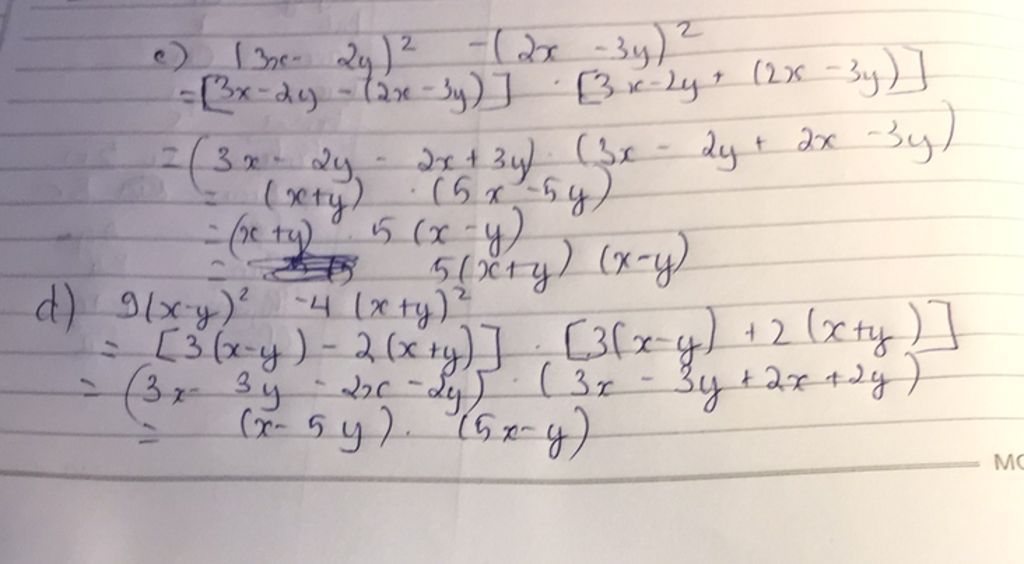 c) (3x - 2y)² - (2x - 3y)²
= [3x - 2y - (2x - 3y)] · [3x - 2y + (2x - 3y)]
= (3x - 2y - 2x + 3y) · (3x - 2y + 2x - 3y)
= (x+y) · (5x - 5y)
= (x+y) · 5(x - y)
= 5(x+y) (x-y)
d) 9(x-y)² - 4(x+y)²
= [3(x-y) - 2(x+y)] · [3(x-y) + 2(x+y)]
= (3x - 3y - 2x - 2y) · (3x - 3y + 2x + 2y)
= (x - 5y) · (5x - y)